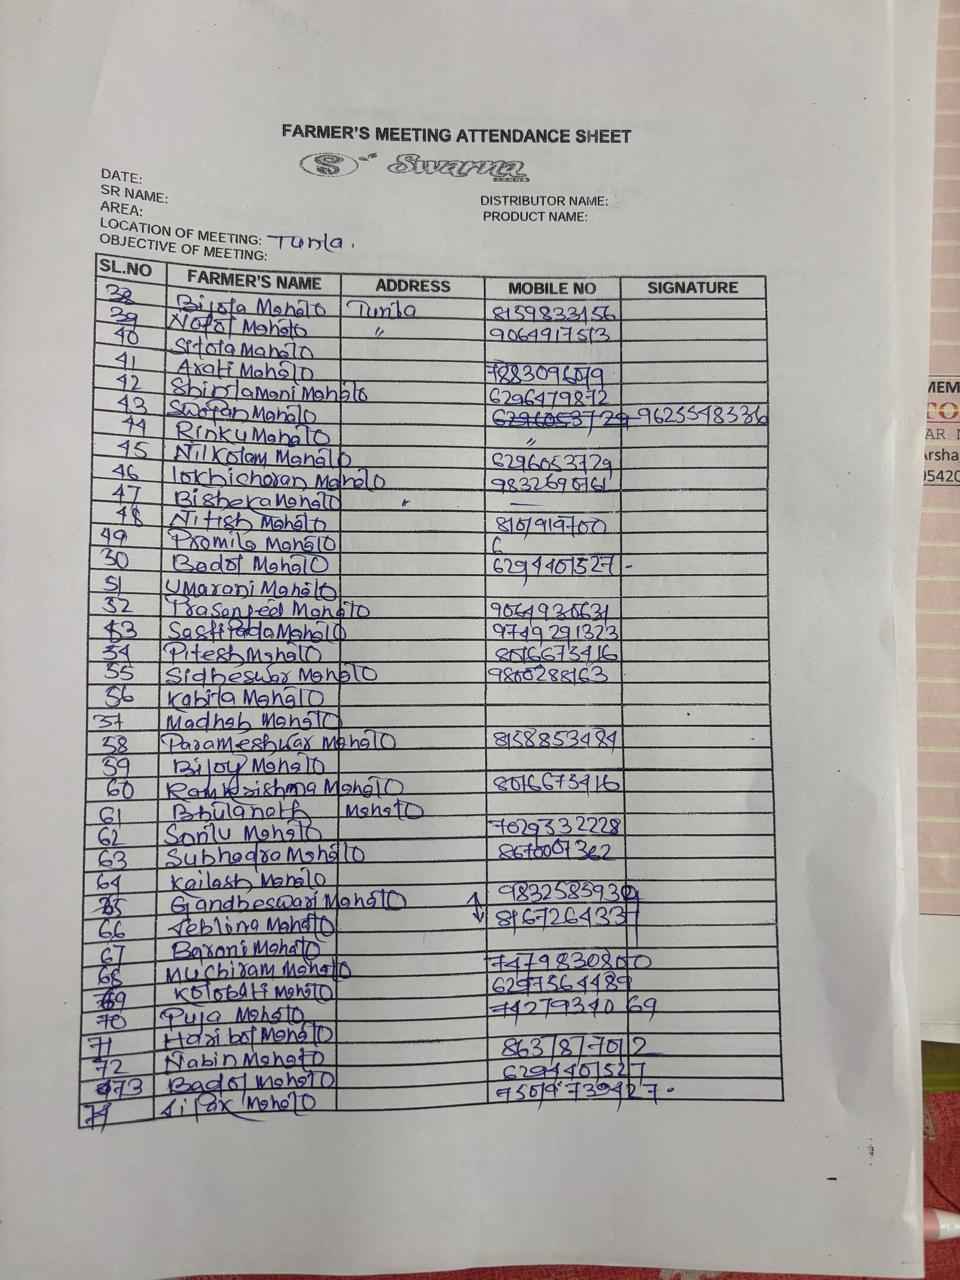 FARMER'S MEETING ATTENDANCE SHEET
S Swarna
DATE:
SR NAME:
DISTRIBUTOR NAME:
AREA:
PRODUCT NAME:
LOCATION OF MEETING: Tunla.
OBJECTIVE OF MEETING:
SL.NO FARMER'S NAME ADDRESS MOBILE NO SIGNATURE
38 Bijola Mahato Tunla 8159833156
39 Notol Mahato " 9064917513
40 Sitola Mahato
41 Arati Mahato 7883096019
42 Shirolamani Mahato 6296479872
43 Swapan Mahato 6296053729 9625548536
44 Rinku Mahato "
45 Nilkolam Mahato 6296053729
46 lokhicharan Mahato 9832690161
47 Bishera Mahato " —
48 Nitish Mahato 8101919700
49 Promila Mahato 6
50 Badol Mahato 6294401527 -
51 Umarani Mahato
52 Prasanjeed Mahato 9064930631
53 Sastipada Mahato 9749291323
54 Pitesh Mahato 8016673416
55 Sidheswar Mahato 9800288163
56 Kabita Mahato
57 Madhab Mahato
58 Parameshwar Mahato 8158853484
59 Bijoy Mahato
60 Ramkrishna Mahato 8016673416
61 Bhulanath Mahato
62 Sontu Mahato 7029332228
63 Subhadra Mahato 8670007362
64 Kailash Mahato
65 Gandheswari Mahato 9832583930
66 Jeblina Mahato 8167264337
67 Barani Mahato
68 Muchiram Mahato 7479830800
69 Kolobati Mahato 6297564489
70 Puja Mahato 7427934069
71 Haribol Mahato
72 Nabin Mahato 8637877012
73 Badol Mahato 6294401527
74 Mahato 75019739427 -
MEM
TO
AR
Arsha
9542